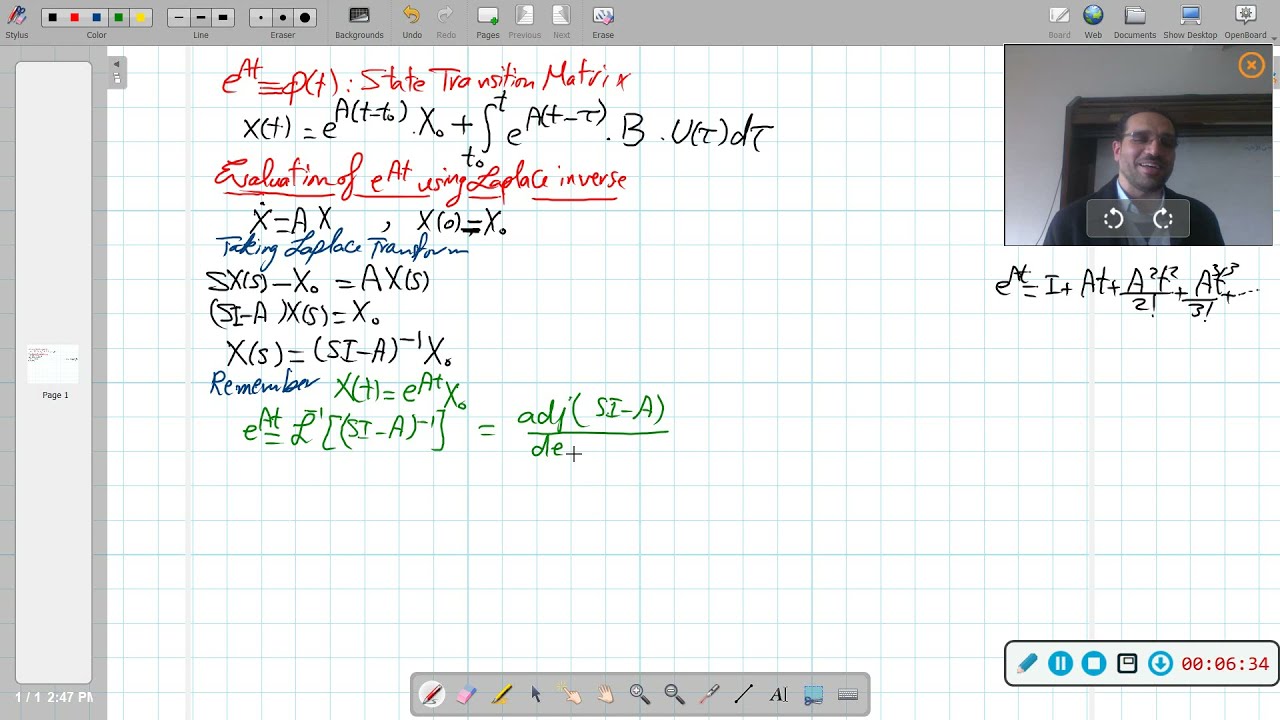 Stylus Color Line Eraser Backgrounds Undo Redo Pages Previous Next Erase Board Web Documents Show Desktop OpenBoard
e^{At} = φ(t) : State Transition Matrix
X(t) = e^{A(t-t₀)} . X₀ + ∫_{t₀}^{t} e^{A(t-τ)} . B . U(τ) dτ
Evaluation of e^{At} using Laplace inverse
Ẋ = A X , X(0) = X₀
Taking Laplace Transform
SX(s) - X₀ = A X(s)
(SI-A) X(s) = X₀
X(s) = (SI-A)^{-1} X₀
Remember X(t) = e^{At} X₀
e^{At} = ℒ^{-1} [(SI-A)^{-1}] = adj(SI-A) / de
e^{At} = I + At + A²t²/2! + A³t³/3! + ....
Page 1
1 / 1 2:47 PM
AI
00:06:34